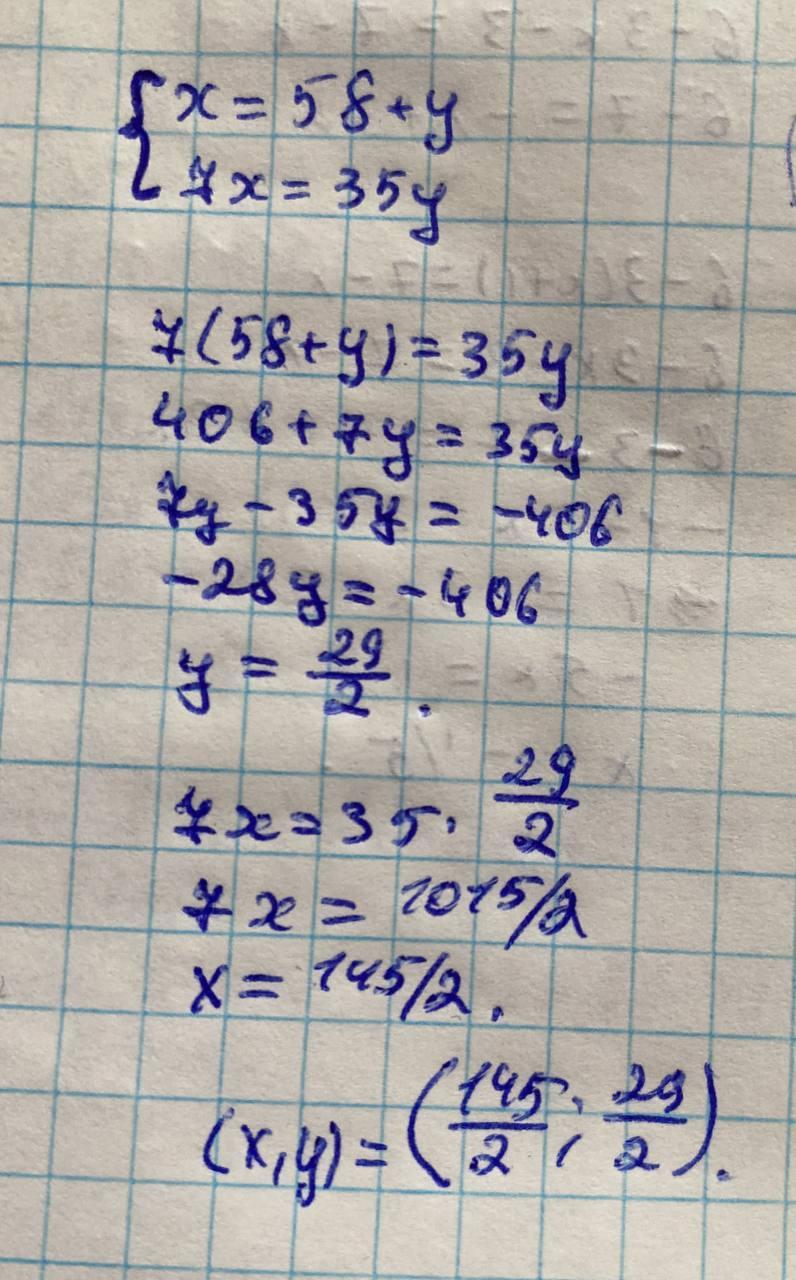 { x = 58 + y
7x = 35y
7(58 + y) = 35y
406 + 7y = 35y
7y - 35y = -406
-28y = -406
y = 29/2.
7x = 35 · 29/2
7x = 1015/2
x = 145/2.
(x, y) = (145/2; 29/2).